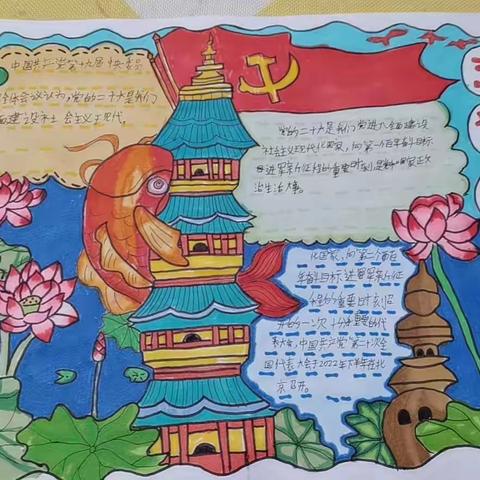 中国共产党第十九届中央委员
全体会议认为,党的二十大是我们
面建设社会主义现代
党的二十大是我们党进入全面建设
社会主义现代化国家,向第二个百年奋斗目标
进军新征程的重要时刻
治生活大事。
化国家,向第二个百
年奋斗目标进军新征
程的重要时刻召
开的一次十分重要的代
表大会,中国共产党第二十次全
国代表大会于2022年下半年在北
京召开。